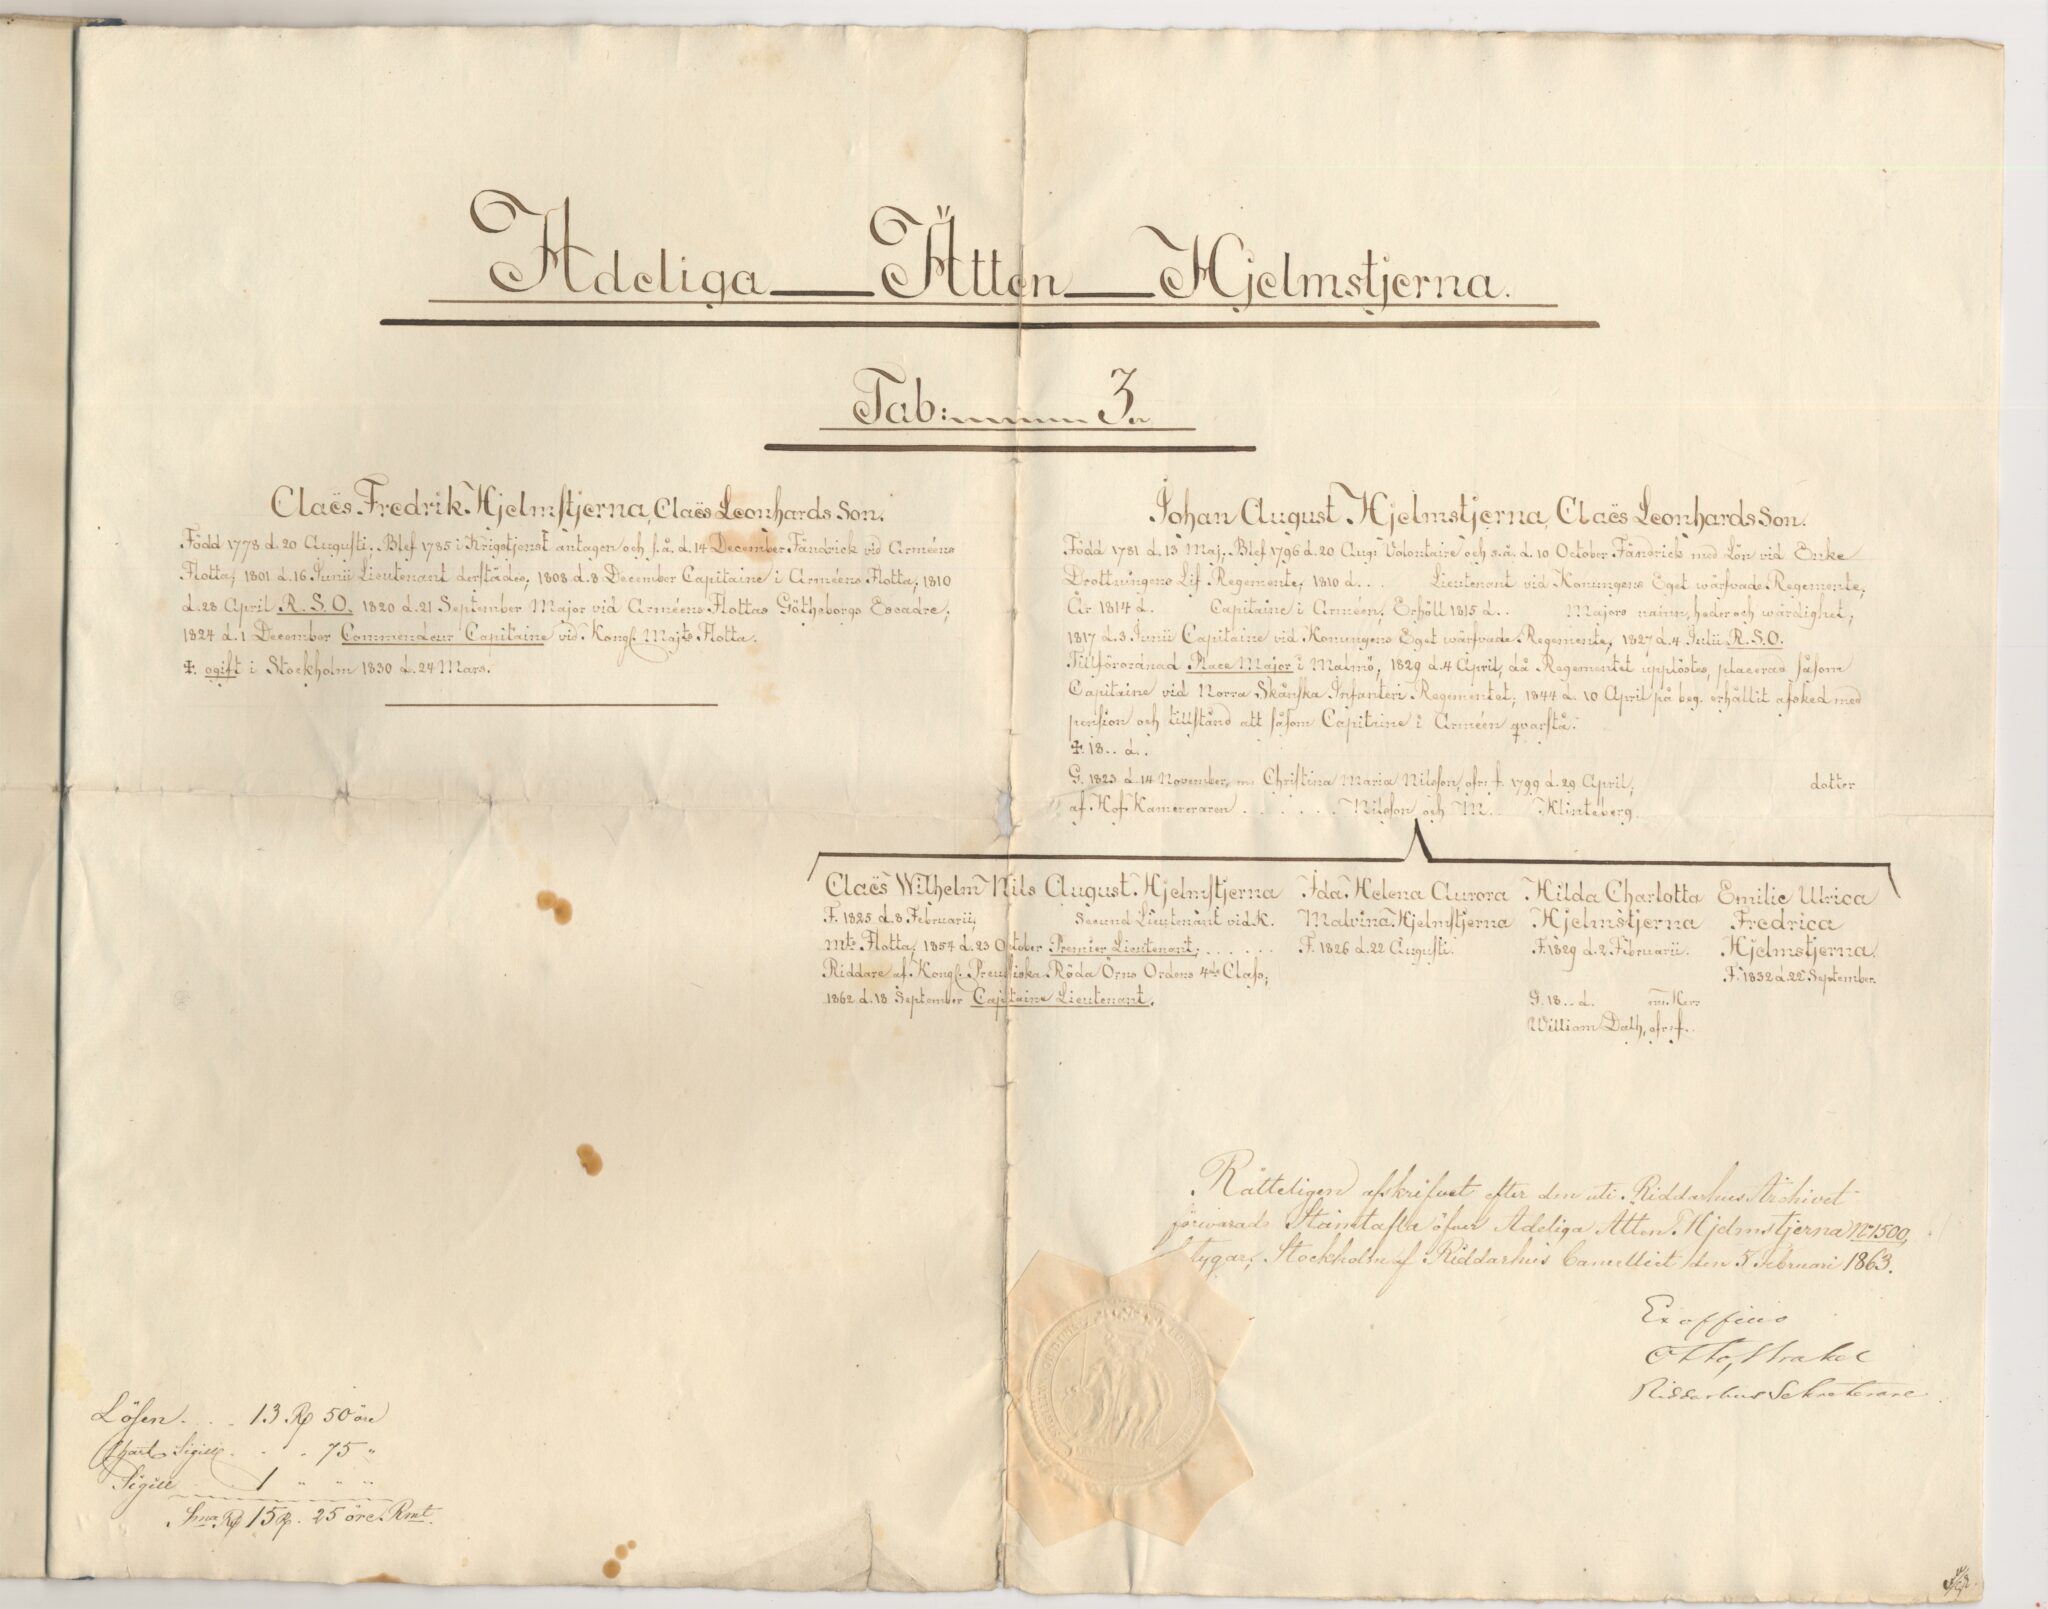 Adeliga Ätten Hjelmstjerna.
Tab: 3.
Claës Fredrik Hjelmstjerna, Claës Leonhards Son.
Född 1778 d. 20 Augusti; Blef 1785 i Krigstjenst antagen och s. å. d. 14 December Fändrick vid Arméens
Flotta; 1801 d. 16 Junii Lieutenant derstädes; 1808 d. 8 December Capitaine i Arméens Flotta; 1810
d. 28 April R. S. O. 1820 d. 21 September Major vid Arméens Flottas Götheborgs Escadre;
1824 d. 1 December Commendeur Capitaine vid Kongl. Majts Flotta.
‡ ogift i Stockholm 1830 d. 24 Mars.
Johan August Hjelmstjerna, Claës Leonhards Son.
Född 1781 d. 13 Maj; Blef 1796 d. 20 Aug: Volontaire och s. å. d. 10 October Fändrick med Lön vid Enke
Drottningens Lif Regemente; 1810 d. . Lieutenant vid Konungens Eget wärfvade Regemente;
År 1814 d. Capitaine i Arméen; Erhöll 1815 d. . Majors namn, heder och wärdighet;
1817 d. 3 Junii Capitaine vid Konungens Eget wärfvade Regemente; 1827 d. 4 Julii R.S.O.
Tillförordnad Place Major i Malmö; 1829 d. 4 April, då Regementet upplöstes, placerad såsom
Capitaine vid Norra Skånska Infanteri Regementet; 1844 d. 10 April på beg. erhållit afsked med
pension och tillstånd att såsom Capitaine i Arméen qvarstå.
‡ 18. . d. .
G. 1823 d. 14 November, m. Christina Maria Nilsson, ofr: f. 1799 d. 29 April; dotter
af Hof Kamereraren . . . . . . Nilsson och M. . Klinteberg.
Claës Wilhelm Nils August Hjelmstjerna
F. 1825 d. 8 Februarii; Second Lieutenant vid K.
Mts Flotta; 1854 d. 23 October Premier Lieutenant; . . . . . .
Riddare af Kongl. Preussiska Röda Örns Ordens 4de Class;
1862 d. 18 September Capitaine Lieutenant.
Ida Helena Aurora
Malvina Hjelmstjerna
F. 1826 d. 22 Augusti.
Hilda Charlotta
Hjelmstjerna
F. 1829 d. 2 Februarii.
G. 18. . d. m. Herr
William Dath, ofr: f. .
Emilie Ulrica
Fredrica
Hjelmstjerna
F. 1832 d. 22 September.
Rätteligen afskrifvet efter den uti Riddarhus Archivet
förwarade Stamtafla öfver Adeliga Ätten Hjelmstjerna No 1500,
betygar, Stockholm af Riddarhus Cancelliet den 5 Februari 1863.
Ex officio
Otto
Riddarhus Sekreterare.
Lösen. . . . 13 Rd 50 öre
Chart. Sigill. . . . 75 "
Sigill 1 " " "
Sma Rd 15 R. 25 öre Rmt.